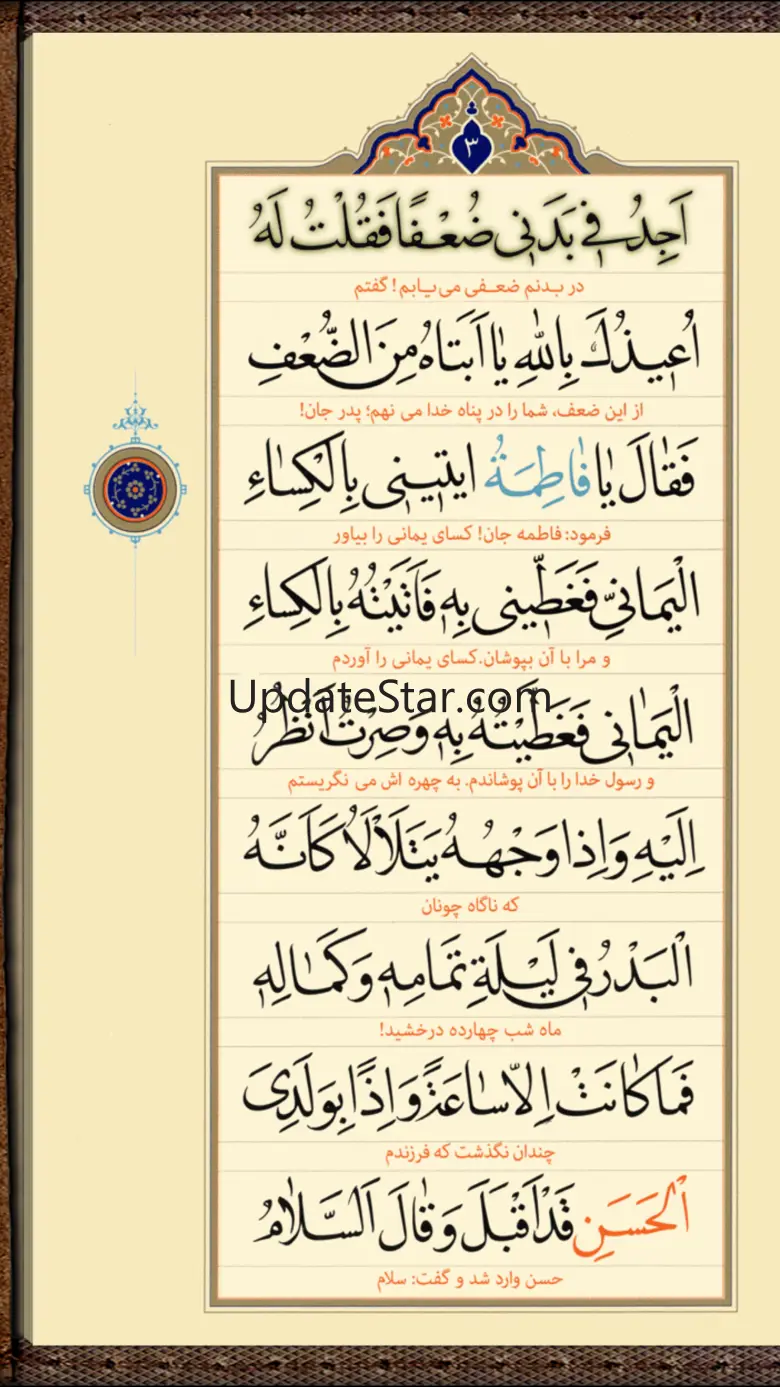 ٣
اَجِدُ فِي بَدَنِي ضُعْفًا فَقُلْتُ لَهُ
در بدنم ضعفی می‌یابم! گفتم
اُعيذُكَ بِاللّٰهِ يٰا اَبَتٰاهُ مِنَ الضُّعْفِ
از این ضعف، شما را در پناه خدا می نهم؛ پدر جان!
فَقٰالَ يٰا فٰاطِمَةُ ايتِينِي بِالْكِسٰاءِ
فرمود: فاطمه جان! کسای یمانی را بیاور
الْيَمٰانِيِّ فَغَطِّينِي بِهِ فَاَتَيْتُهُ بِالْكِسٰاءِ
و مرا با آن بپوشان.کسای یمانی را آوردم
UpdateStar.com
الْيَمٰانِي فَغَطَّيْتُهُ بِهِ وَصِرْتُ اَنْظُرُ
و رسول خدا را با آن پوشاندم. به چهره اش می نگریستم
اِلَيْهِ وَاِذٰا وَجْهُهُ يَتَلَأْلَأُ كَاَنَّهُ
که ناگاه چونان
الْبَدْرُ فِي لَيْلَةِ تَمٰامِهِ وَكَمٰالِهِ
ماه شب چهارده درخشید!
فَمٰا كٰانَتْ اِلّٰا سٰاعَةً وَاِذًا بِوَلَدِيَ
چندان نگذشت که فرزندم
الْحَسَنِ قَدْ اَقْبَلَ وَقٰالَ اَلسَّلٰامُ
حسن وارد شد و گفت: سلام